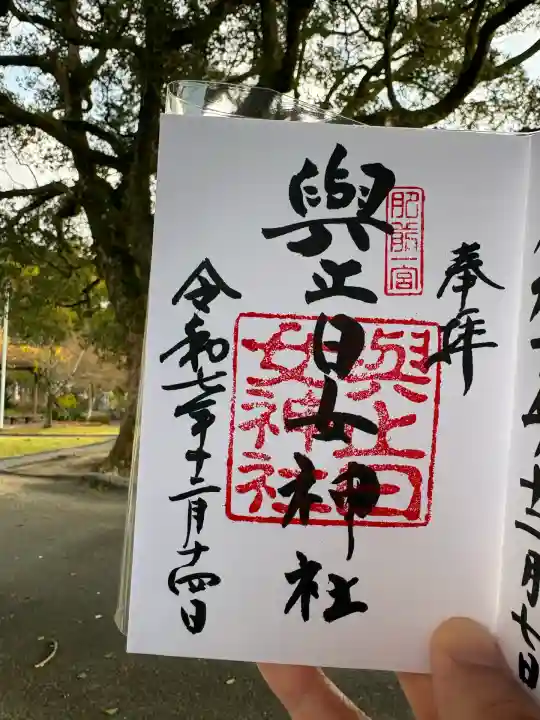 奉拝
肥前一宮
與止日女神社
與止日女神社
令和七年十二月十四日
十二月七日